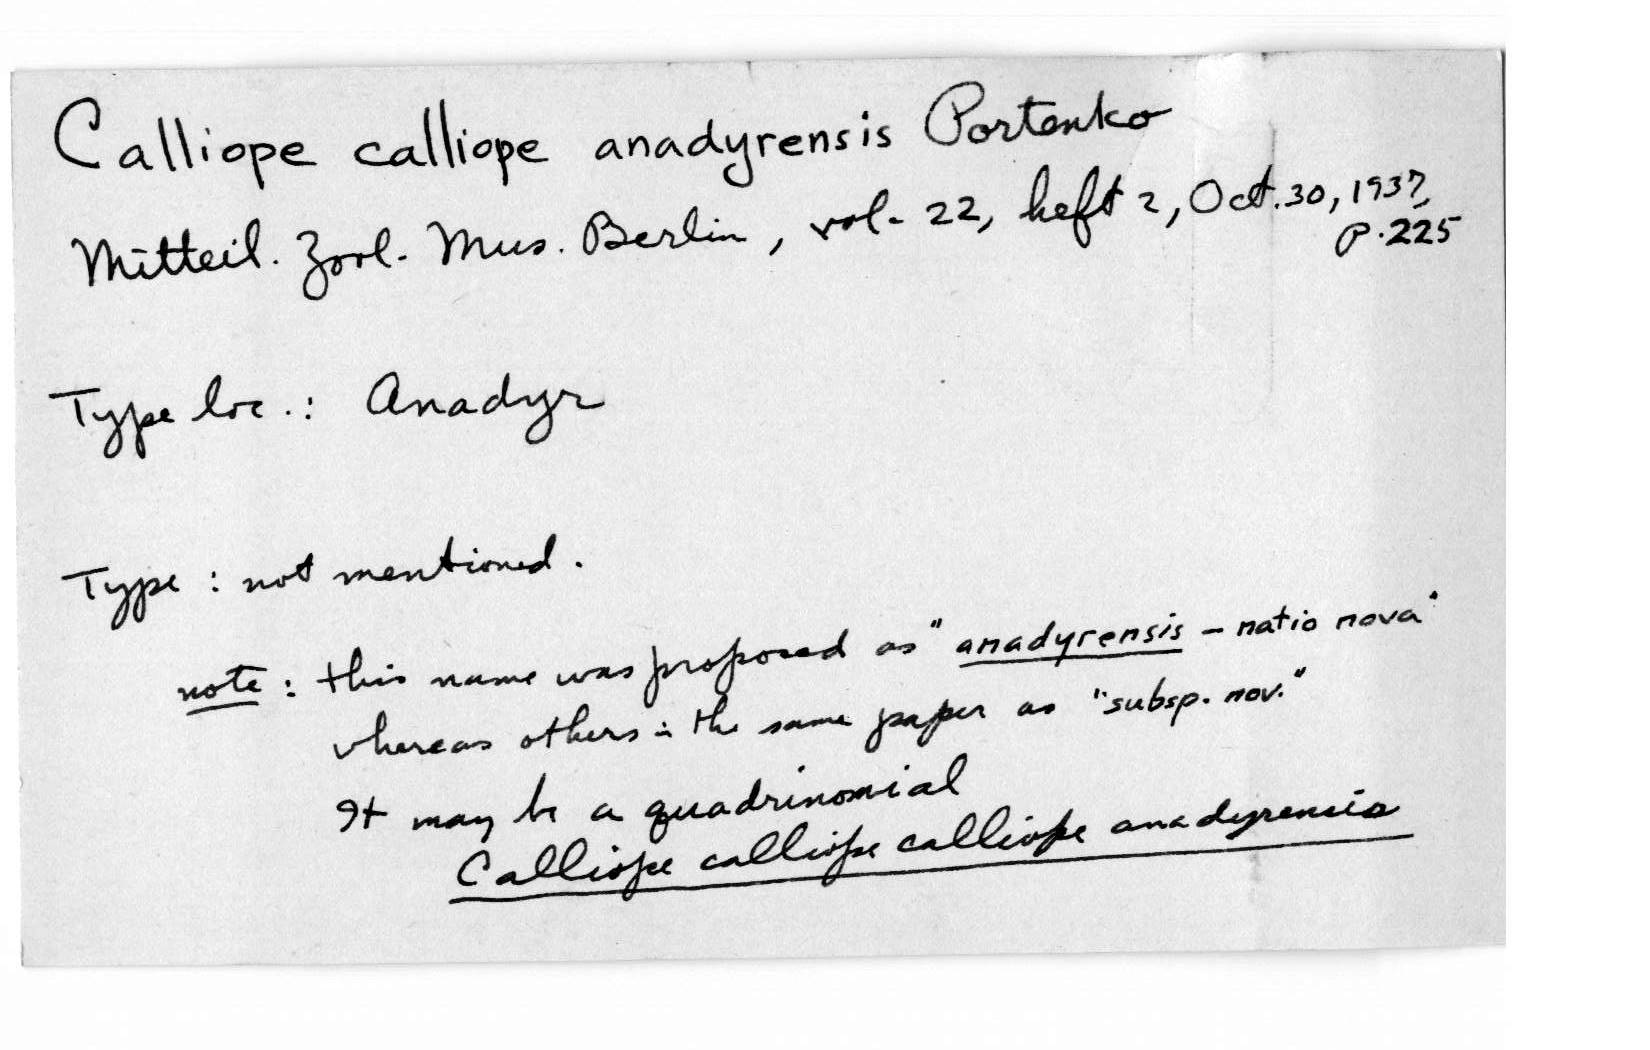 Calliope calliope anadyrensis Portenko
Mitteil. Zool. Mus. Berlin, vol. 22, heft 2, Oct. 30, 1937,
p. 225
Type loc.: Anadyr
Type: not mentioned.
note: this name was proposed as "anadyrensis – natio nova"
whereas others in the same paper as "subsp. nov."
It may be a quadrinomial
Calliope calliope calliope anadyrensis